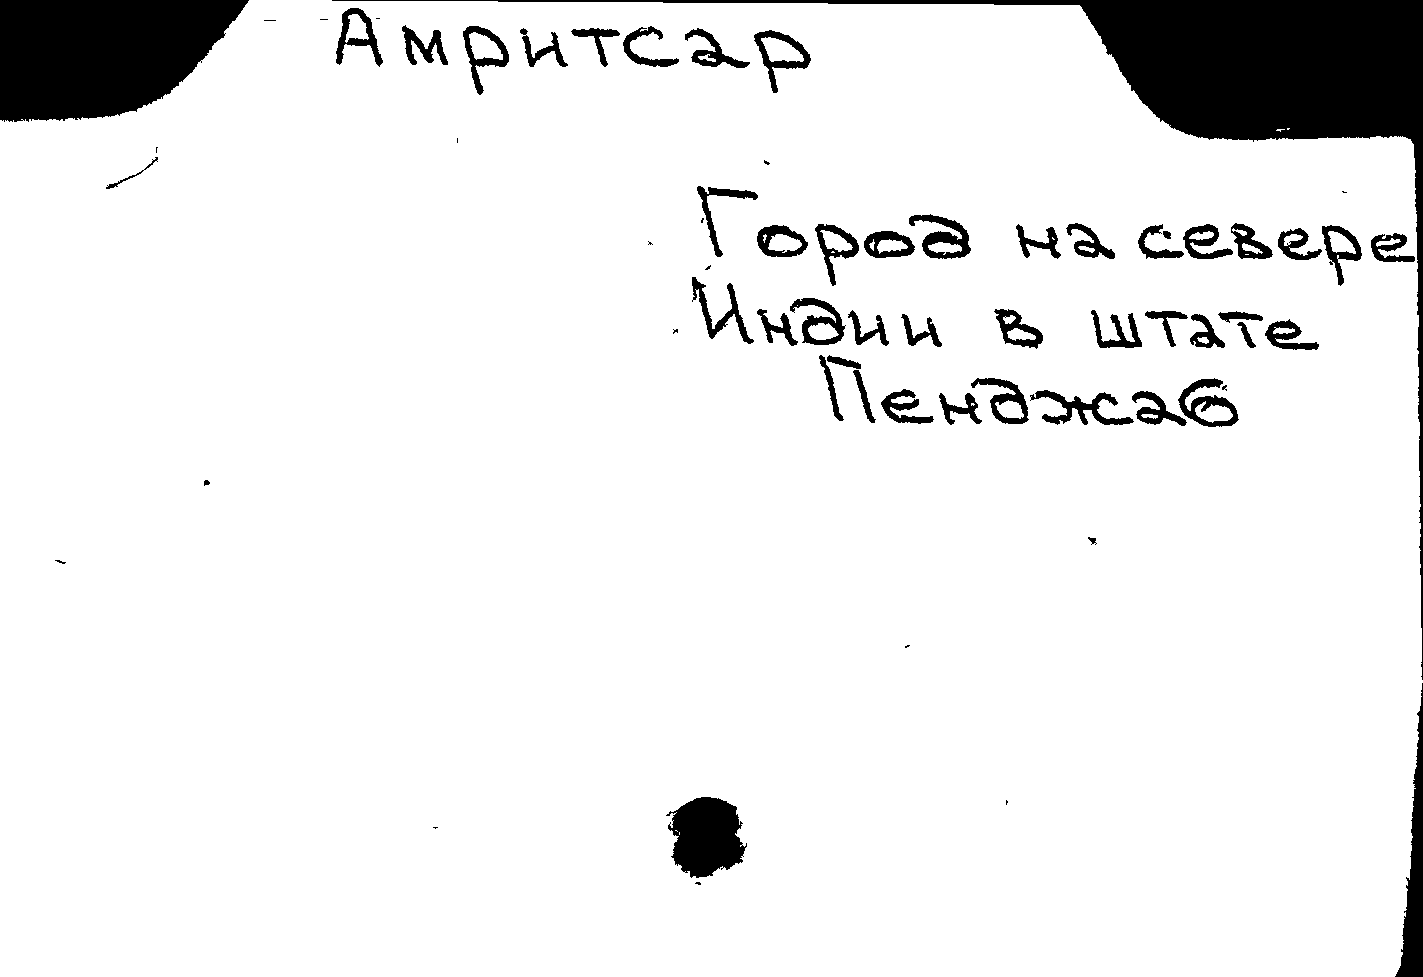 Амритсар
Город на севере
Индии в штате
Пенджаб